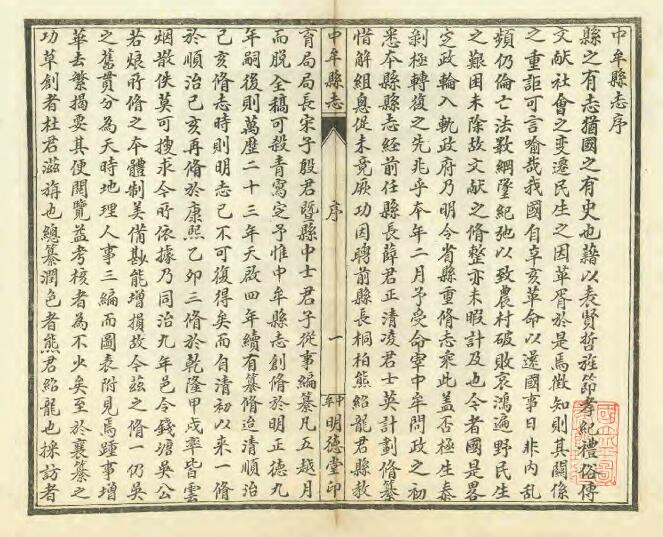 中牟縣志序
縣之有志猶國之有史也藉以表賢哲旌節孝紀禮俗傳
文献社會之变遷民生之因革胥於是焉徵知則其關係
之重詎可言喻哉我國自辛亥革命以還國事日非内亂
頻仍倫亡法斁綱墜紀弛以致農村破敗哀鴻遍野民生
之艱困未除故文献之修整亦未暇計及也今者國是畧
定政輪入軌政府乃明令省縣重脩志乘此盖否極生泰
剝極轉復之先兆乎本年二月予受命宰中牟問政之初
悉本縣縣志經前任縣長薛君正清凌君士英計劃脩纂
惜解組息促未竟厥功因聘前縣長桐柏熊紹龍君縣教
中牟縣志
序
一
中牟
明德堂印
育局局長宋子殷君曁縣中士君子從事編纂凡五越月
而脱全稿可殺青寫定予惟中牟縣志創脩於明正德九
年嗣後則萬歷二十三年天啟四年續有纂脩迨清順治
己亥脩志時則明志已不可復得矣而自清初以来一脩
於順治己亥再脩於康熙乙卯三脩於乾隆甲戌率皆雲
烟散佚莫可搜求今所依據乃同治九年邑令錢塘吳公
若烺所脩之本體制美備尠能增損故今兹之脩一仍吳
之舊貫分為天時地理人事三編而圖表附見焉踵事增
華去繁揭要其便閱覽益考核者為不少矣至於襄纂之
功草創者杜君滋旃也總纂潤色者熊君紹龍也採訪者